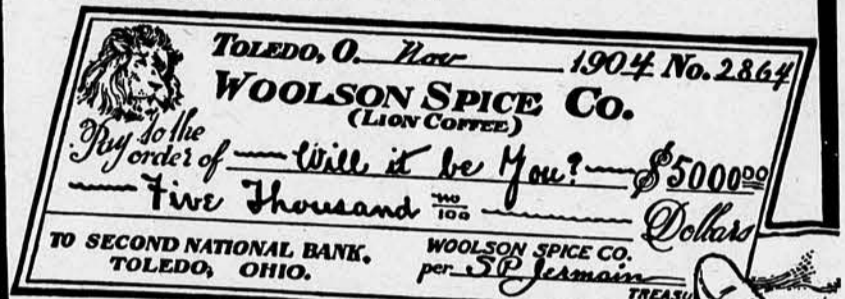 TOLEDO, O. Nov 1904 No. 2864
WOOLSON SPICE CO.
(LION COFFEE)
Pay to the
order of — Will it be You? — $5000 00
— Five Thousand no/100 — Dollars
TO SECOND NATIONAL BANK.
TOLEDO, OHIO.
WOOLSON SPICE CO.
per S P Jermain
TREASU